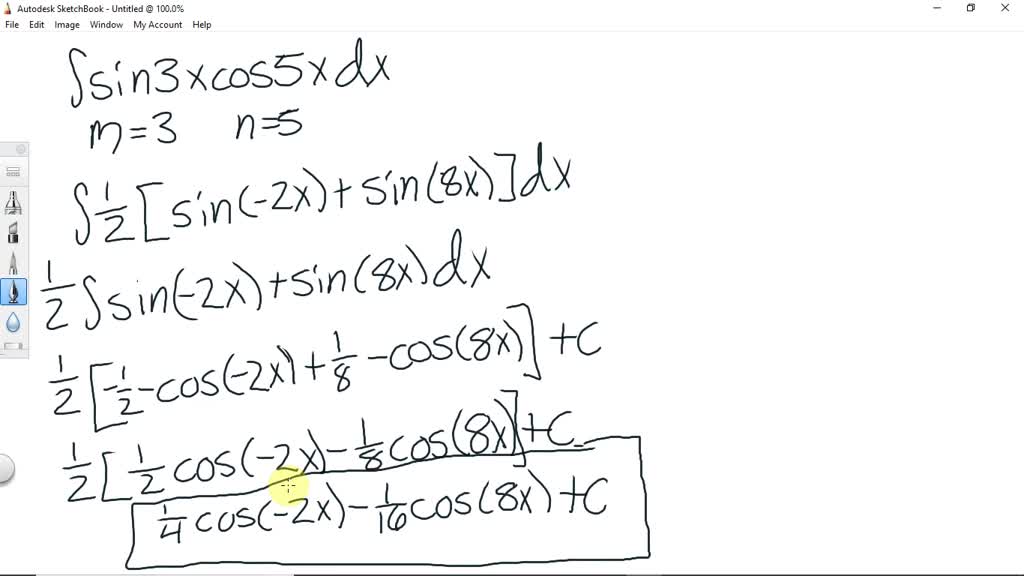 Autodesk SketchBook - Untitled @ 100.0%
File Edit Image Window My Account Help
∫sin3xcos5xdx
m=3 n=5
∫1/2[sin(-2x)+sin(8x)]dx
1/2∫sin(-2x)+sin(8x)dx
1/2[-1/2-cos(-2x)+1/8-cos(8x)]+C
1/2[1/2cos(-2x)-1/8cos(8x)]+C
1/4cos(-2x)-1/16cos(8x)+C